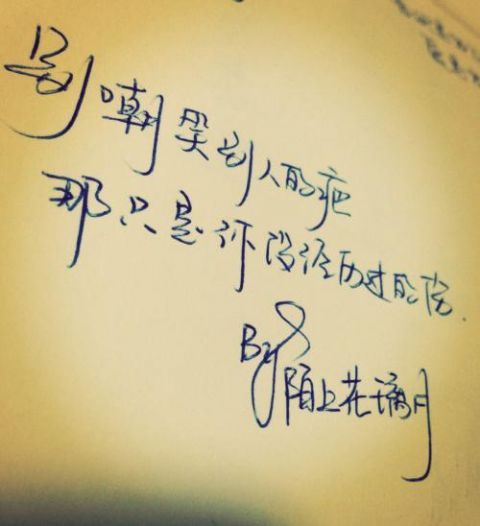 别嘲笑别人的疤
那只是你没经历过的伤.
By
陌上花璃月